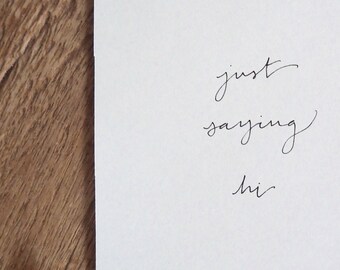 just
saying
hi